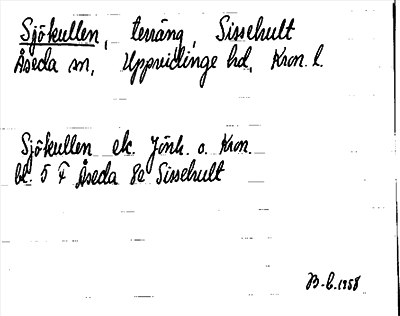 Sjökullen, terräng, Sissehult
Åseda sn, Uppvidinge hd, Kron. l.
Sjökullen ek. Jönk. o. Kron.
bl. 5 F Åseda 8e Sissehult
B-b. 1958